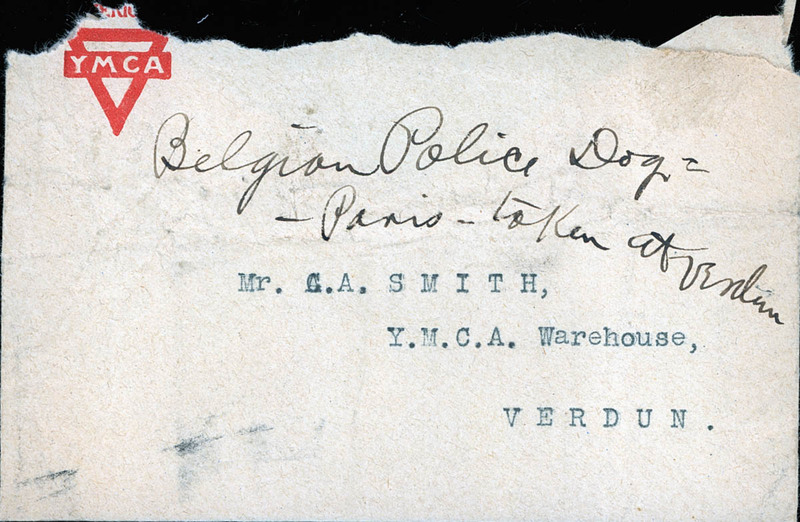 YMCA
Belgian Police Dog =
- Paris - taken at Verdun
Mr. A. SMITH,
Y.M.C.A. Warehouse,
VERDUN.